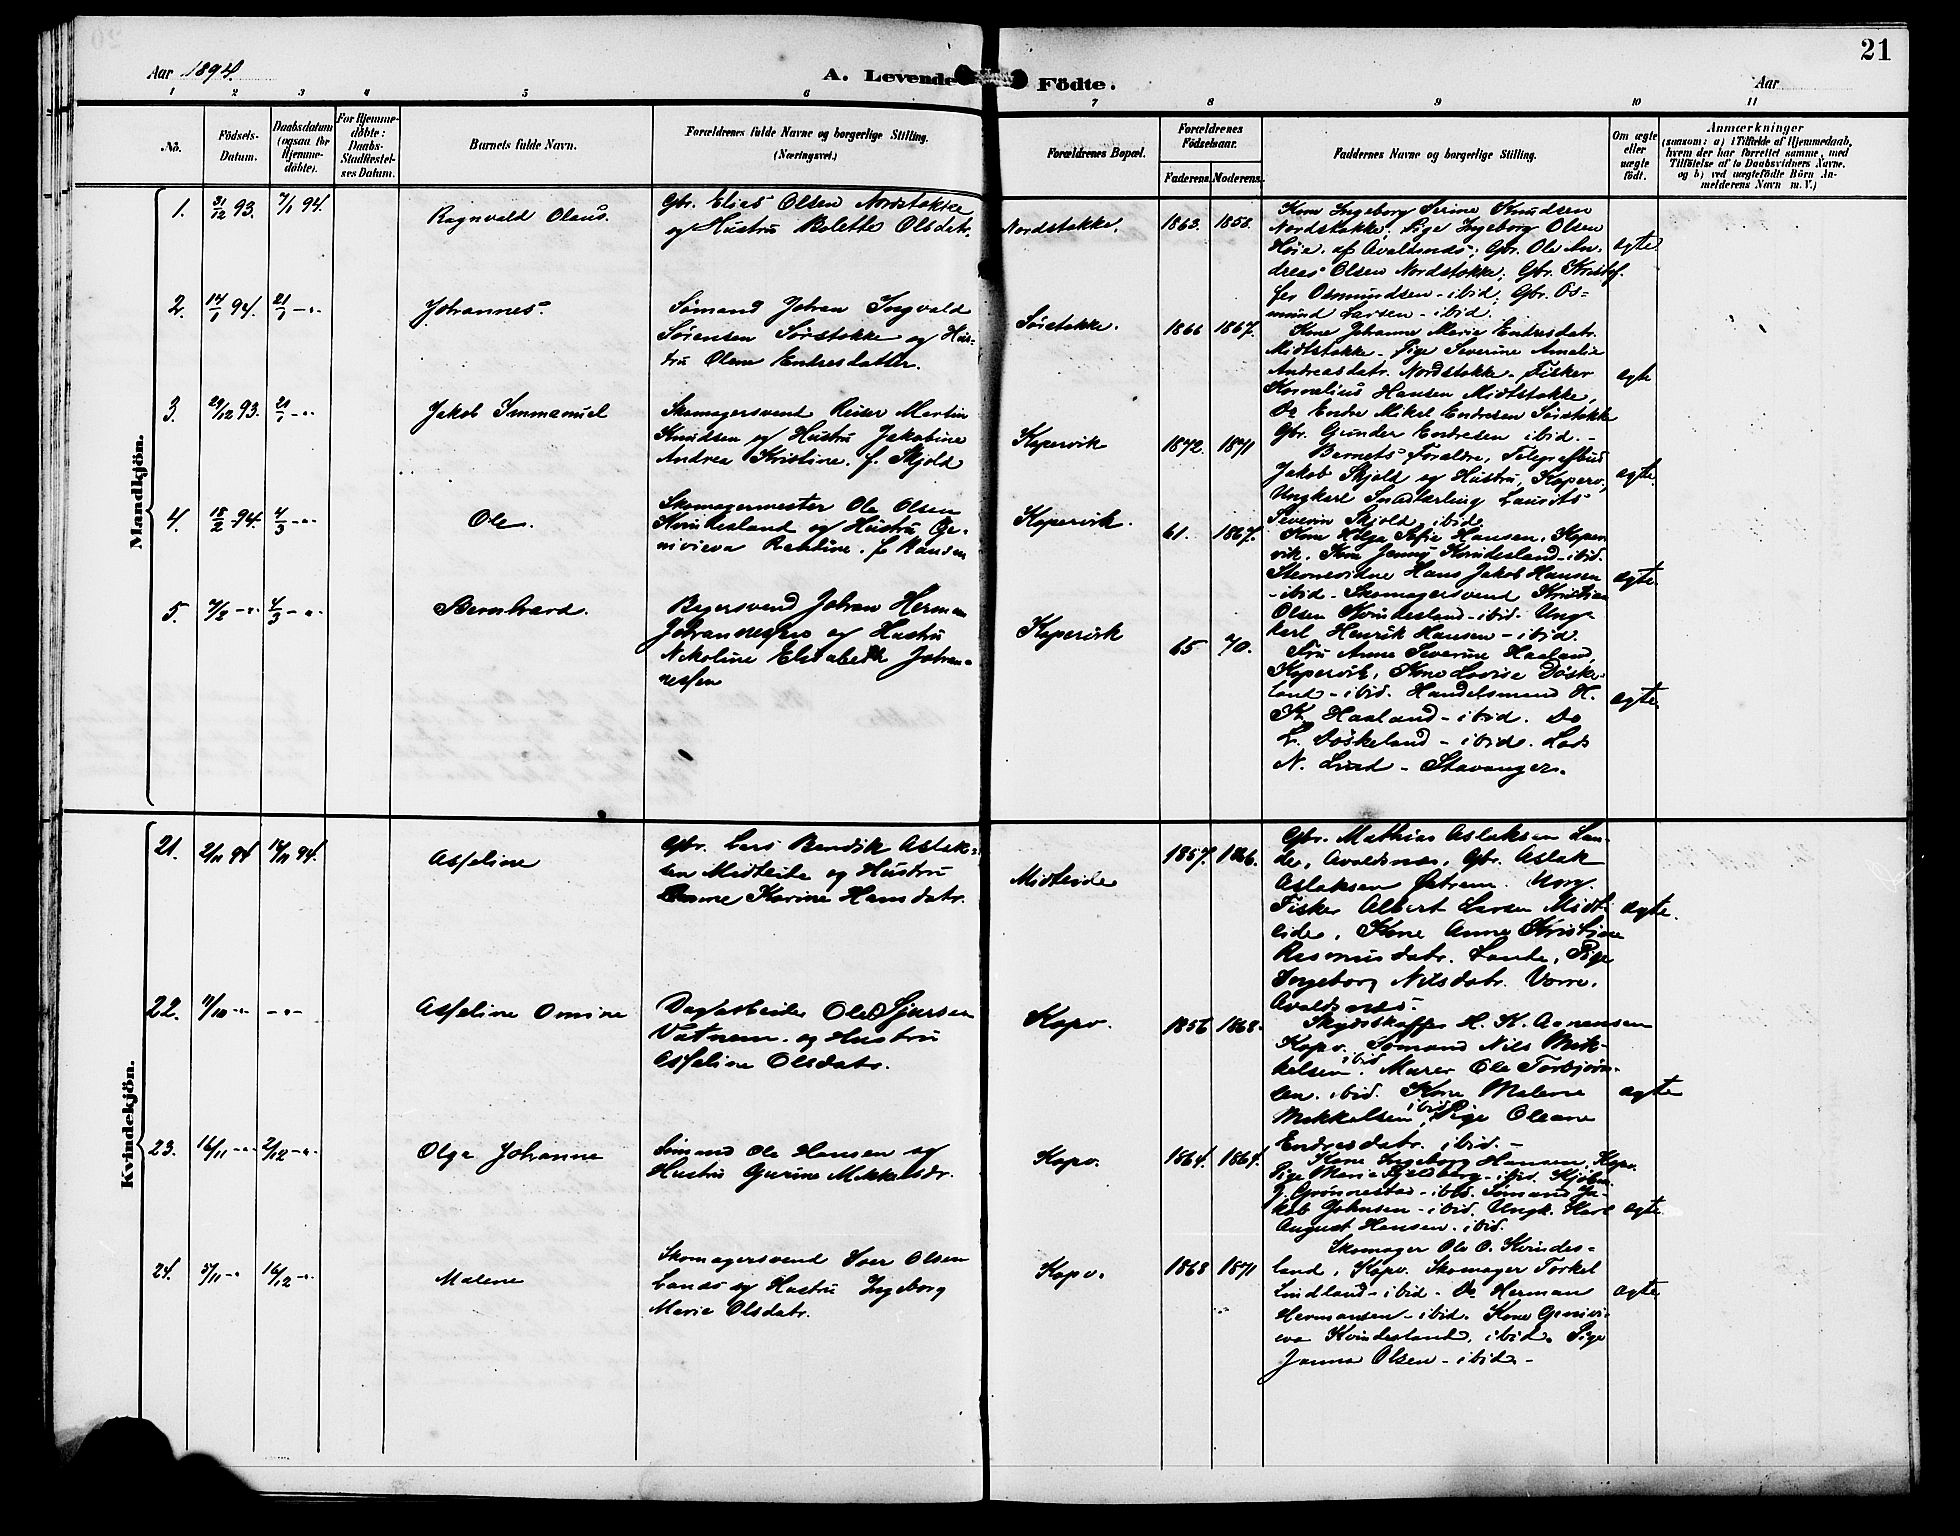 21
Aar 1894.
A. Levende Födte.
Aar
1 2 3 4 5 6 7 8 9 10 11
No.
Födsels-Datum.
Daabsdatum (ogsaa for Hjemme-döbte).
For Hjemme-döbte: Daabs-Stadfæstel-ses Datum.
Barnets fulde Navn.
Forældrenes fulde Navne og borgerlige Stilling.
(Næringsvei.)
Forældrenes Bopæl.
Forældrenes Födselsaar.
Faderens. Moderens.
Faddernes Navne og borgerlige Stilling.
Om ægte eller uægte födt.
Anmærkninger
(saasom: a) i Tilfælde af Hjemmedaab, hvem der har forrettet samme, med Tilföielse af to Daabsvidners Navne, og b) ved uægtefödte Börn Anmelderens Navn m. V.)
Mandkjön.
1. 31/12 93. 7/1 94.
Ragnvald Olaus.
Gbr. Elias Olsen Nordstokke
og Hustru Bolette Olsdatr.
Nordstokke.
1863. 1858.
Kone Ingeborg Serine Knudsen
Nordstokke, Pige Ingeborg Olsen
Høie af Avaldsnes; Gbr. Ole An-
dreas Olsen Nordstokke; Gbr. Kristof-
fer Osmundsen - ibid; Gbr. Os-
mund Larsen - ibid.
ægte
2. 14/1 94. 21/1 - "
Johannes.
Sømand Johan Ingvald
Sørensen Sørstokke og Hus-
tru Olene Endresdatter.
Sørstokke.
1866 1867.
Kone Johanne Marie Endresdatr.
Midtstokke - Pige Severine Amalie
Andreasdatr. Nordstokke - Fisker
Kornelius Hansen Midtstokke,
Do Endre Mikel Endresen Sørstokke
Gbr. Gunder Endresen ibid. -
ægte
3. 29/12 93. 21/1 - "
Jakob Immanuel
Skomagersvend Reier Martin
Knudsen og Hustru Jakobine
Andrea Kristine. f. Skjold
Kopervik
1872. 1871
Barnets Forældre, Telegrafbud
Jakob Skjold og Hustru, Koperv.,
Ungkarl Snedkerling Laurits
Severin Skjold, ibid.
ægte.
4. 18/2 94. 4/3 - "
Ole.
Skomagermester Ole Olsen
Kvindesland og Hustru Ge-
nivieva Bertine. f. Hansen
Kopervik.
61. 1867.
Kone Helga Sofie Hansen, Koper-
vik, Kone Jenny Kvindesland - ibid.
Stevnevidne Hans Jakob Hansen
- ibid - Skomagersvend Kristian
Olsen Kvindesland - ibid. Ung-
karl Henrik Hansen - ibid.
ægte
5. 7/2 - " 4/3 - "
Bernhard.
Bagersvend Johan Herman
Johannessen og Hustru
Nikoline Elisabeth Johan-
nessen
Kopervik
65 70.
Fru Anne Severine Haaland,
Kopervik, Kone Lovise Døske-
land - ibid. Handelsmand H.
K. Haaland - ibid. Do
L. Døskeland - ibid. Lods
N. Lund - Stavanger.
ægte.
Kvindekjön.
21. 2/11 94 14/11 94.
Asseline
Gbr. Lars Bendik Aslak-
sen Midtlide og Hustru
Anne Karine Hansdatr.
Midtlide
1857. 1866.
Gbr. Mathias Aslaksen Lan-
de, Avaldsnes, Gbr. Aslak
Aslaksen Østrem. Ung.
Fisker Albert Larsen Midt-
lide, Kone Anne Kristine
Rasmusdatr. Lande, Pige
Ingeborg Nilsdatr. Vorre.
Avaldsnes.
ægte.
22. 11/10 - " - " -
Asseline Omine
Dagarbeider Ole Sjursen
Vatnem og Hustru
Asseline Olsdatr.
Kopv.
1856 1868.
Skydsskaffer H. K. Asnensen
Kopv. Sømand Nils Mik-
kelsen. ibid Murer Ole Torbjørn-
sen. ibid. Kone Malene
Mikkelsen, ibid Pige Oleane
Endresdatr. ibid. -
ægte
23. 16/11 - " 2/12 - "
Olga Johanne
Sømand Ole Hansen og
Hustru Gurine Mikkelsdr.
Kopv.
1864. 1864.
Kone Ingeborg Hansen, Kopv.
Pige Marie Fjeldberg - ibid. Kjøbm.
J. Grønnestad - ibid. Sømand Ja-
kob Johnsen - ibid. Ungk. Karl
August Hansen. ibid.
ægte
24. 5/11 - " 16/12 - "
Malene
Skomagersvend Iver Olsen
Lande og Hustru Ingeborg
Marie Olsdatr.
Kopv.
1868 1871
Skomager Ole O. Kvindes-
land, Kopv. Skomager Torkel
Lindland - ibid - Do Herman
Hermansen - ibid. Kone Genivi-
eva Kvindesland, ibid. Pige
Janna Olsen - ibid -
ægte